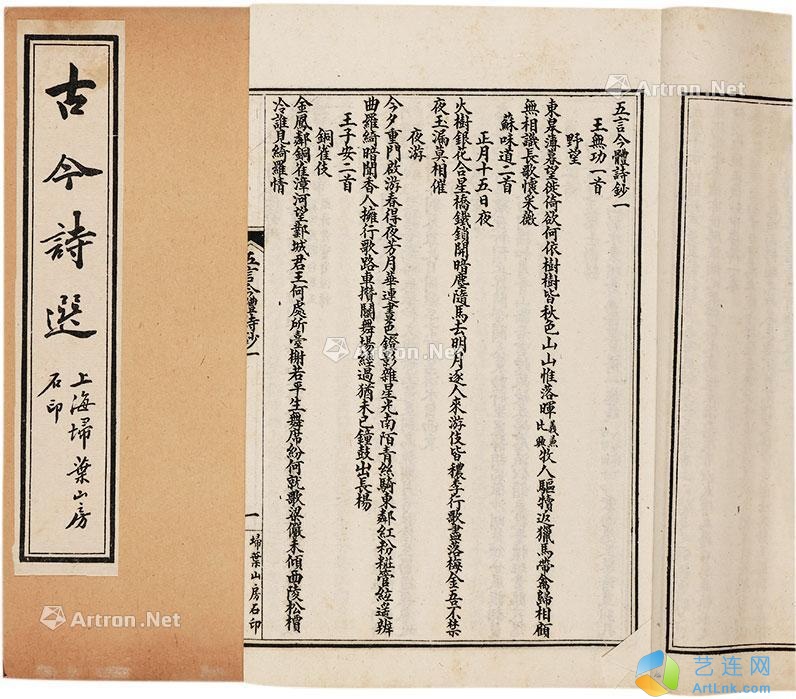 古今詩選
上海埽葉山房
石印
五言今體詩鈔一
王無功一首
野望
東皋薄暮望徙倚欲何依樹樹皆秋色山山惟落暉義兼比興牧人驅犢返獵馬帶禽歸相顧
無相識長歌懷采薇
蘇味道二首
正月十五日夜
火樹銀花合星橋鐵鎖開暗塵隨馬去明月逐人來游伎皆穠李行歌盡落梅金吾不禁
夜玉漏莫相催
夜游
今夕重門啟游春得夜芳月華連晝色鐙影雜星光南陌青絲騎東鄰紅粉糚管絃遙辨
曲羅綺暗聞香人擁行歌路車攢鬬舞場經過猶未已鐘鼓出長楊
王子安二首
銅雀伎
金鳳鄰銅雀漳河望鄴城君王何處所臺榭若平生舞席紛何就歌梁儼未傾西陵松檟
冷誰見綺羅情
五言今體詩鈔一
一
埽葉山房石印
Artron.Net
Artron.Net
Artron.Net
Artron.Net
艺连网
ArtLnk.com